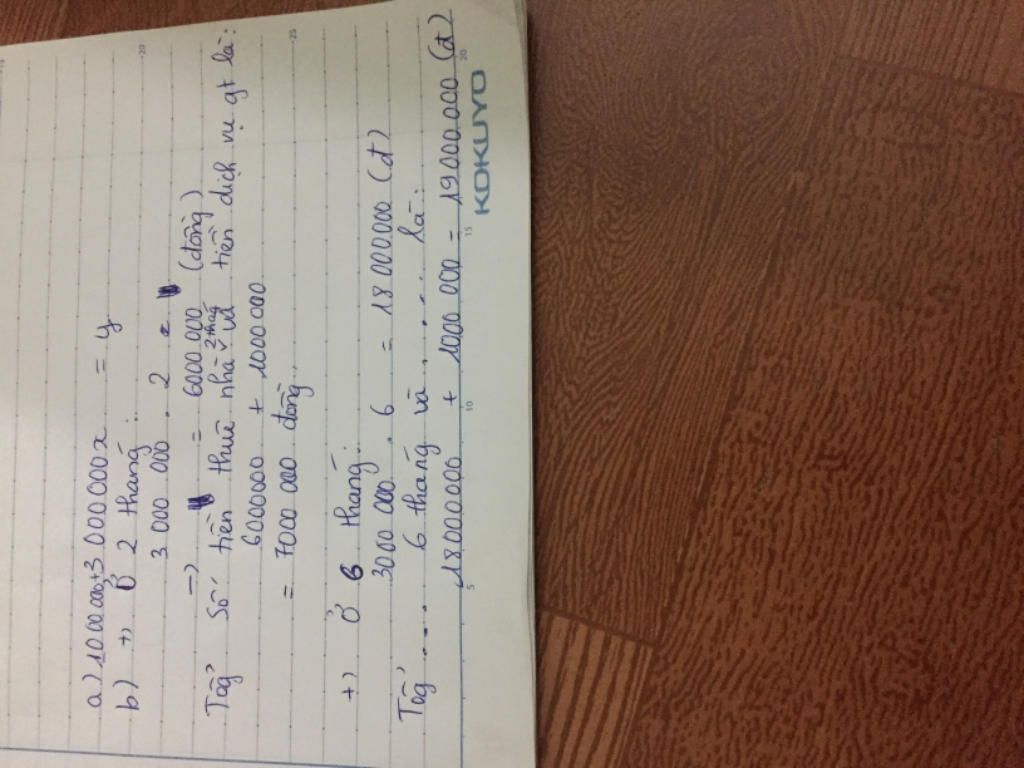 a) 1000000+3000000x = y
b) +) Ở 2 tháng:
3 000 000 . 2 =
-) = 6000 000 (đồng)
Tổg Số tiền thuê nhà 2 thág và tiền dịch vụ gt là:
6000000 + 1000 000
= 7000 000 đồng.
+) Ở 6 tháng:
3000 000 . 6 = 18 000000 (đ)
Tổg .... 6 tháng và ...... là:
18000000 + 1000 000 = 19000.000 (đ)
5 10 15 20
KOKUYO